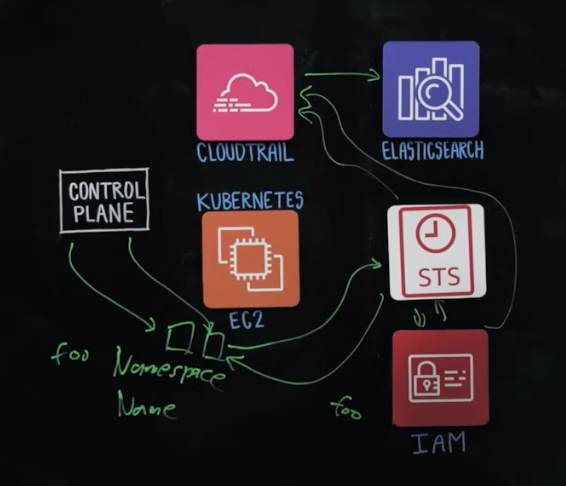 CLOUDTRAIL
ELASTICSEARCH
CONTROL
PLANE
KUBERNETES
EC2
STS
foo
Namespace
Name
foo
IAM